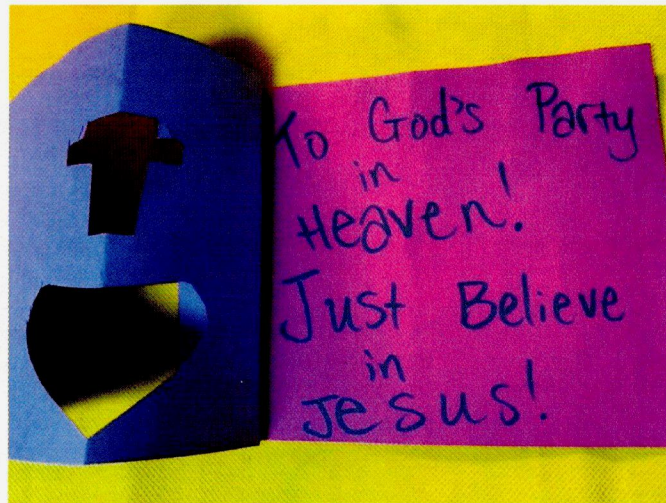 To God's Party
in
Heaven!
Just Believe
in
Jesus!